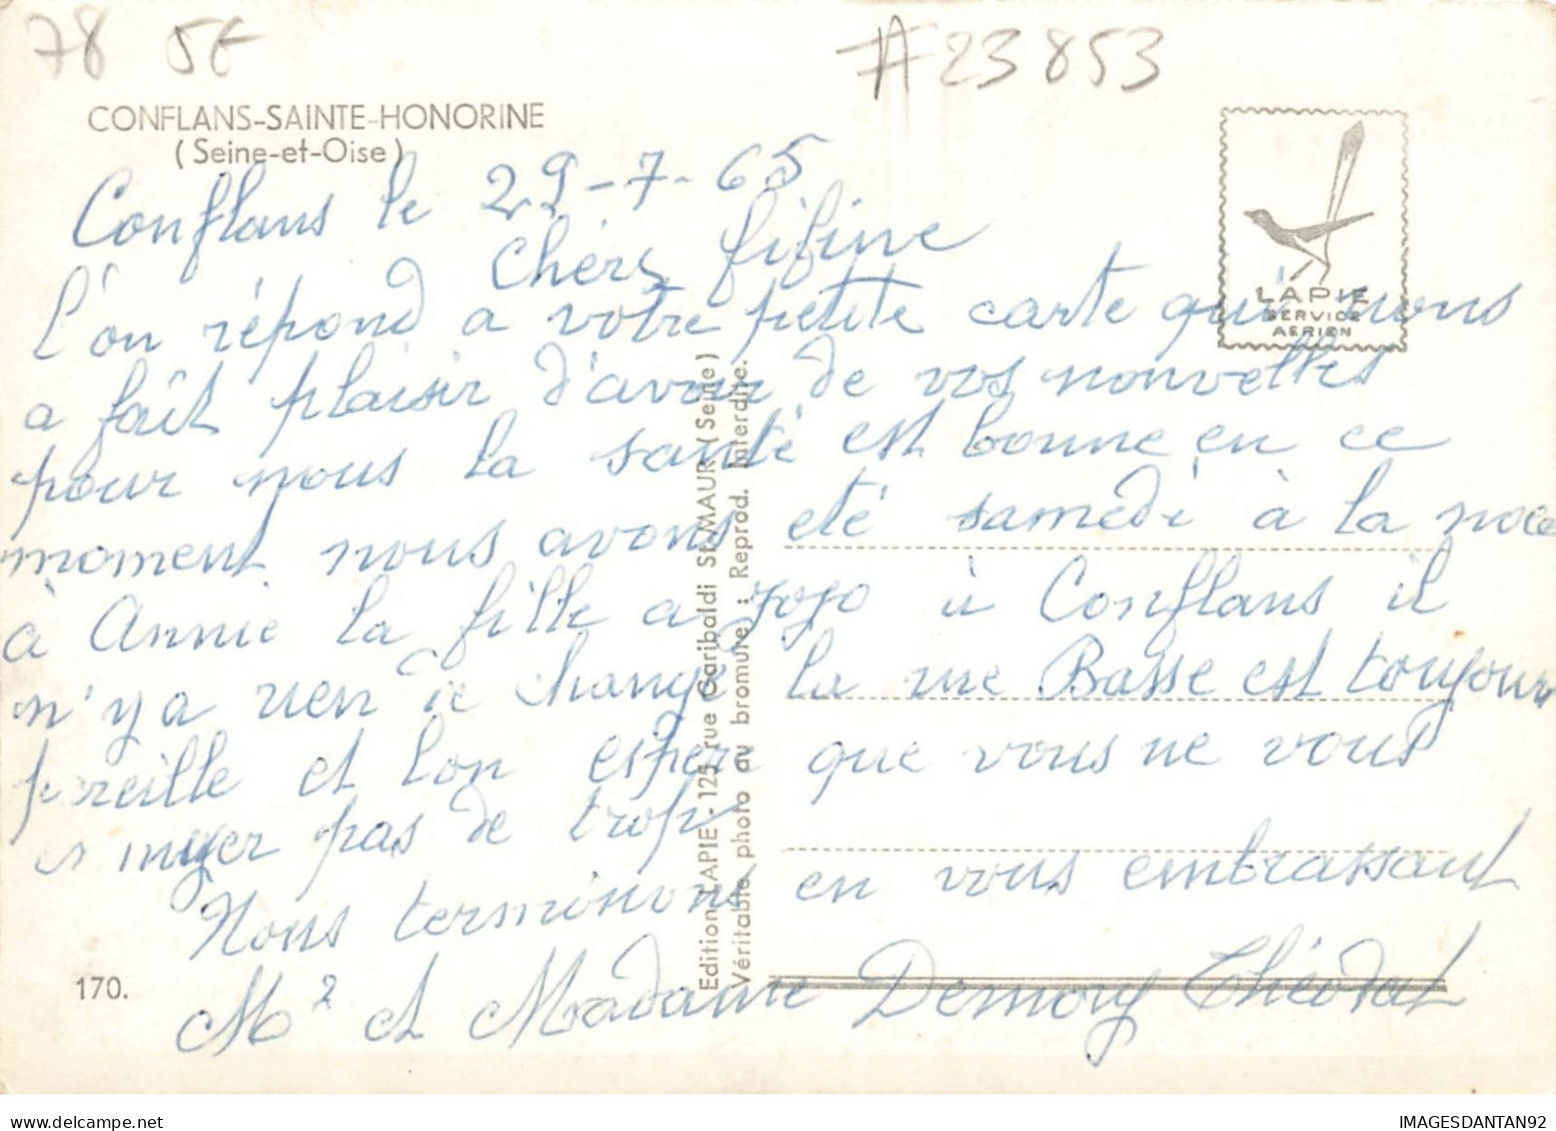 78 5E
#23853
CONFLANS-SAINTE-HONORINE
(Seine-et-Oise)
LAPIE
SERVICE
AERIEN
Conflans le 29-7-65
Chers fifine
L'on répond a votre petite carte qui nous
a fait plaisir d'avoir de vos nouvelles
pour nous la santé est bonne en ce
moment nous avons eté samedi à la noce
à Annie la fille a jojo à Conflans il
n'y a rien de changé la rue Basse est toujours
pareille et lon espere que vous ne vous
ennuyer pas de trop
Nous terminons en vous embrassant
Mr et Madame Demory Théodat
170.
Edition LAPIE - 125, rue Garibaldi St-MAUR (Seine)
Véritable photo au bromure : Reprod. Interdite.
IMAGESDANTAN92